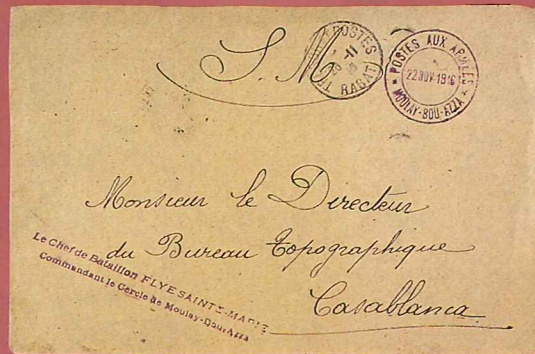 S. M.
POSTES
RABAT
POSTES AUX ARMÉES
22 NOV 1916
MOULAY-BOU-AZZA
Monsieur le Directeur
du Bureau Topographique
Casablanca
Le Chef de Bataillon FLYE SAINTE-MARIE
Commandant le Cercle de Moulay-Bou-Azza